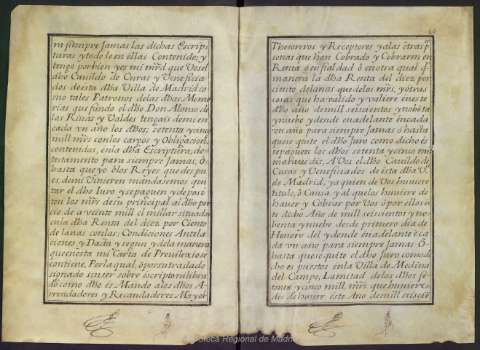 ra siempre Jamas las dichas Escrip
turas y todo lo en ellas Contenido, y
tengo por bien y es mi mrd que Vos el
dho Cauildo de Curas y Veneficia
dos de esta dha Villa de Madrid co
mo tales Patrones de las dhas Memo
rias que fundo el dho Don Alonso de
las Riuas y Valdes tengais de mi en
cada vn año los dhos setenta y cinco
mill mrs con los cargos y Obligacion.
contenidas en la dha Escriptura, de
testamento para siempre Jamas, ó
hasta que yo ó los Reyes que des pu
es, de mi Vinieren mandaremos qui
tar el dho Juro y se paguen y deposi
ten los mrs de su principal al dho pre
cio de a veinte mill el millar situados
en la dha Renta del diez por Ciento
de lanas con las Condiciones Antela
ciones y Data y segun y de la manera
que en esta mi Carta de Preuilexio se
contiene, Por la qual, ó por su traslado
signado sin ser sobre escripto ni libra
do como dho es Mando a los dhos A
rrendadores y Recaudadores Mayor.
Thesoreros y Receptores y a las otras pr
sonas que han Cobrado y Cobraren en
Renta ó en fieldad ó en otra qual qr
manera la dha Renta del diez por
ciento de lanas que de los mrs, y otras
cosas que ha valido y valiere en este
dho año de mill seiscientos y nobenta
y nuebe y dende en adelante en cada
vn año para siempre Jamas ó hasta
que se quite el dho Juro como dicho es
se paguen los dhos setenta y cinco mill
marauedis, A Vos el dho Cauildo de
Curas y Veneficiados de esta dha V.
de Madrid, ya quien de Vos huuiere
titulo, ó Causa y al que los huuiere de
hauer y Cobrar por Vos ó por ellos a
te dicho Año de mill seiscientos y no
benta y nuebe desde primero dia de
Henero del y dende en adelante en ca
da vn año para siempre Jamas ó
hasta que se quite el dho Juro como di
cho es puestos en la Villa de Medina
del Campo, La mitad de los dhos se
tenta y cinco mill mrs que huuiere
dis de hauer este Año de mill seiscier